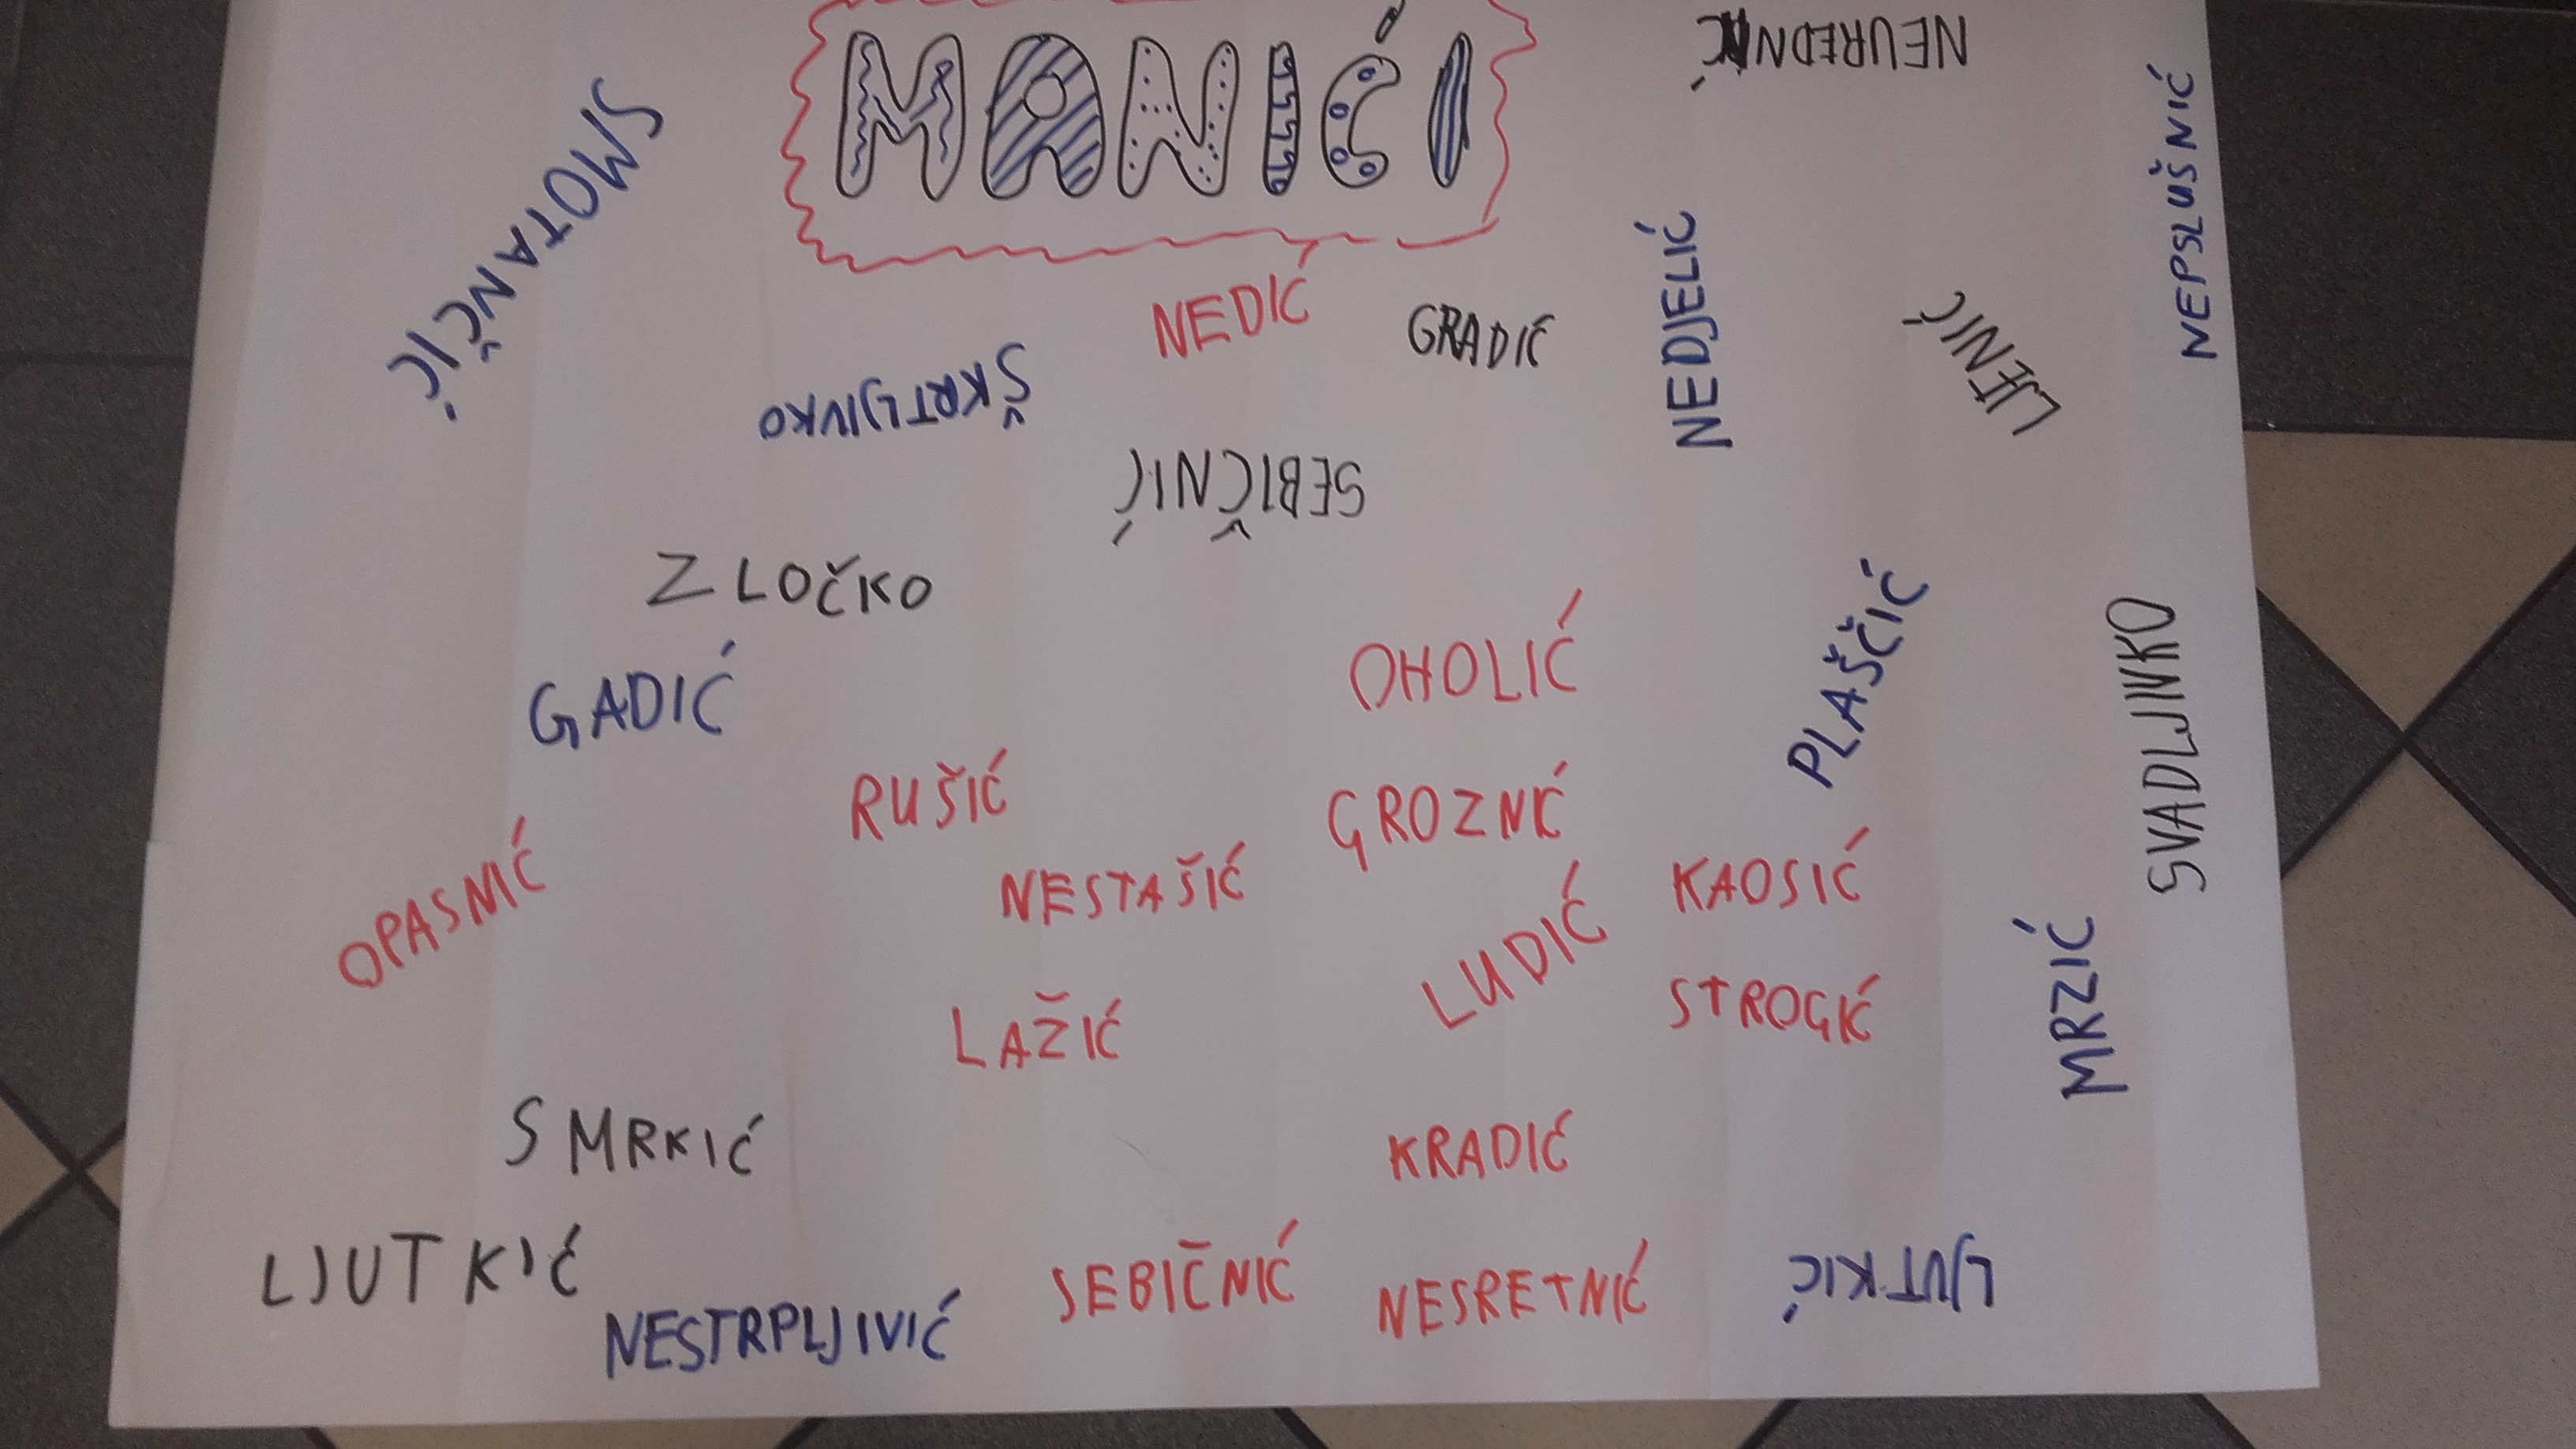 MANIĆI
NEUREDNIĆ
SMOTANČIĆ
NEPSLUŠNIĆ
NEDIĆ
GRADIĆ
NEDJELIĆ
LJENIĆ
ŠKRTLJIVKO
SEBIČNIĆ
ZLOČKO
GADIĆ
OHOLIĆ
PLAŠČIĆ
SVADLJIVKO
RUŠIĆ
GROZNIĆ
OPASNIĆ
NESTAŠIĆ
KAOSIĆ
LUDIĆ
MRZIĆ
LAŽIĆ
STROGIĆ
SMRKIĆ
KRADIĆ
LJUTKIĆ
NESTRPLJIVIĆ
SEBIČNIĆ
NESRETNIĆ
LJUTKIĆ